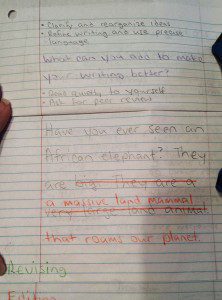 • Clarify and reorganize ideas
• Refine writing and use precise
language
What can you add to make
your writing better?
• Read quietly to yourself
• Ask for peer review
Have you ever seen an
African elephant? They
are big. They are a
a massive land mammal
very large land animal
that roams our planet.
Revising
Editing